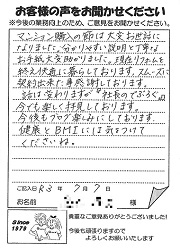 お客様の声をお聞かせください
※今後の業務向上のため、ご意見をお聞かせください。
マンション購入の節は大変お世話に
なりました。分かりやすい説明と丁寧な
お手紙大変助かりました。現在リフォーム
を終え快適に暮らしております。スムーズに
契約出来た事感謝しております。
話は変わりますが "社長のでぶろぐ"
今でも楽しく拝見しております。
今後もブログ楽しみにしております。
健康とBMIには気をつけて
くださいね。
ご記入日 R3年7月7日
お名前 様
Since
1978
貴重なご意見ありがとうございました!
今後も頑張りますので
よろしくお願いいたします